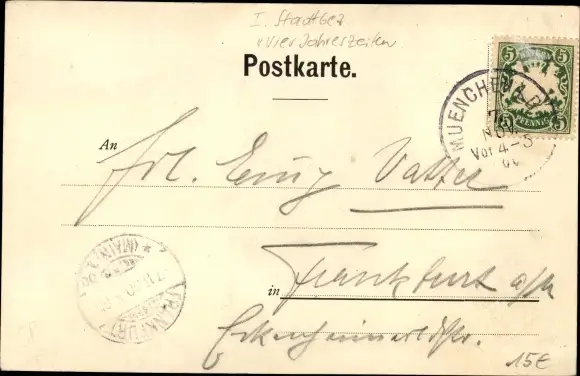 I. Stadtbez
"Vier Jahreszeiten
Postkarte.
5 5
PFENNIG
5 5
MUENCHEN
7
NOV.
Vor 4-5
00
An
Frl. Emy Vatter
FRANKFURT
(MAIN)
in Frankfurt a/M
Eckenheimerldstr.
15€